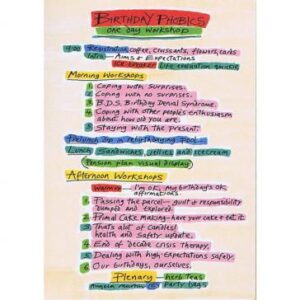 BIRTHDAY PHOBICS
one day workshop
9.00 Registration coffee, croissants, flowers, cards
Intro Aims & Expectations
ICE BREAKER Life evaluation quickie
Morning Workshops
1. Coping with surprises.
2. Coping with no surprises.
3. B.D.S. Birthday Denial Syndrome.
4. Coping with other people's enthusiasm
about how old you are.
5. Staying with the present.
Prelunch dip in rebirthdaying Pool
Lunch Sandwiches, jellies and icecream
Pension plan visual display
Afternoon Workshops
Warmer I'm ok, my birthday's ok,
affirmations.
1. Passing the parcel - guilt & responsibility
dumped and explored.
2. Primal Cake Making - have your cake & eat it
3. That's alot of candles!
health and safety update.
4. End of decade crisis therapy.
5. Dealing with high expectations safely.
6. Our birthdays, ourselves.
Plenary herb teas
Angela Martin party bags